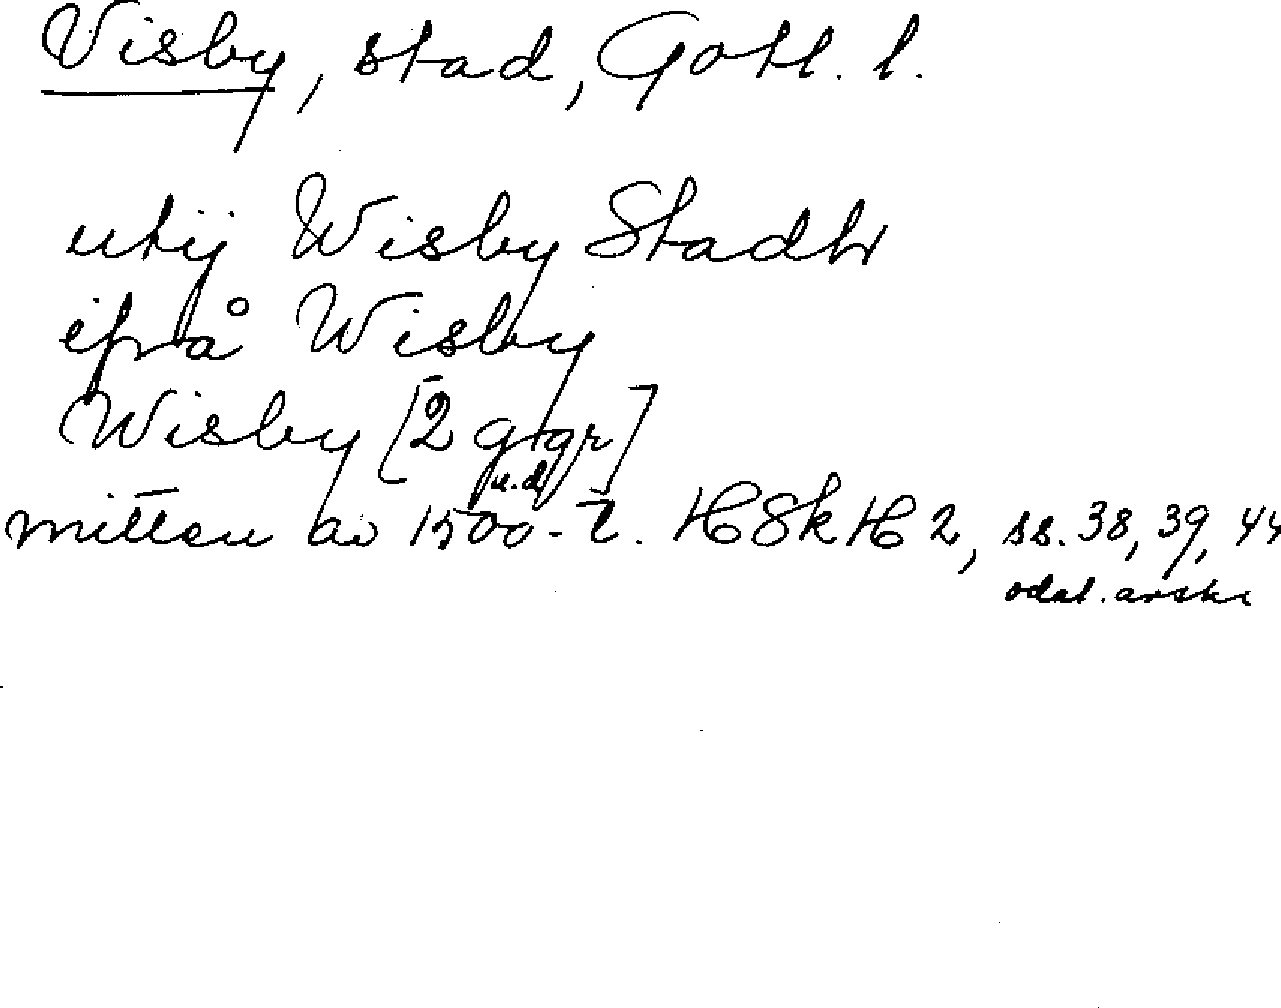 Visby, stad, Gotl. l.
utij Wisby Stadh
ifrå Wisby
Wisby [2 ggr]
u.d.
mitten av 1500-t. HSkH 2, ss. 38, 39, 44
odat. avskr